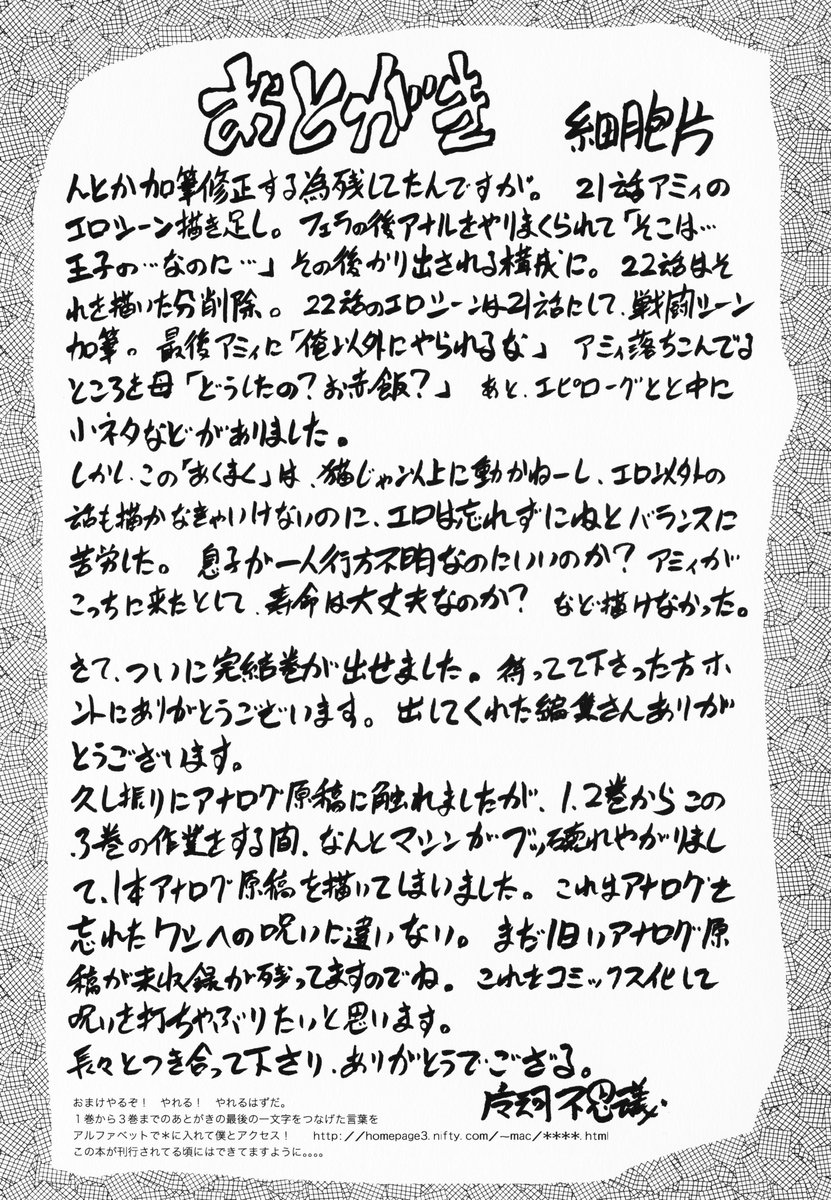 あとがき
細胞片
んとか加筆修正する為残してたんですが。 21話アミィの
エロシーン描き足し。フェラの後アナルをやりまくられて「そこは…
王子の…なのに…」その後かり出される構成に。22話はそ
れを描いた分削除。22話のエロシーンは21話にして、戦闘シーン
加筆。最後アミィに「俺以外にやられるな」 アミィ落ちこんでる
ところを母「どうしたの?お赤飯?」 あと、エピローグとと中に
小ネタなどがありました。
しかし、この「あくまく」は、猫じゃン以上に動かねーし、エロ以外の
話も描かなきゃいけないのに、エロは忘れずにねとバランスに
苦労した。息子が一人行方不明なのにいいのか? アミィが
こっちに来たとして、寿命は大丈夫なのか? など描けなかった。
さて、ついに完結巻が出せました。待ってて下さった方ホ
ントにありがとうございます。出してくれた編集さんありが
とうございます。
久し振りにアナログ原稿に触れましたが、1、2巻からこの
3巻の作業をする間、なんとマシンがブッ壊れやがりまし
て、1本アナログ原稿を描いてしまいました。これはアナログを
忘れたワシへの呪いに違いない。まだ旧いアナログ原
稿が未収録が残ってますのでね。これをコミックス化して
呪いを打ちやぶりたいと思います。
長々とつき合って下さり、ありがとうでござる。
不思議
おまけやるぞ! やれる! やれるはずだ。
1巻から3巻までのあとがきの最後の一文字をつなげた言葉を
アルファベットで*に入れて僕とアクセス! http://homepage3.nifty.com/~mac/****.html
この本が刊行されてる頃にはできてますように。。。。